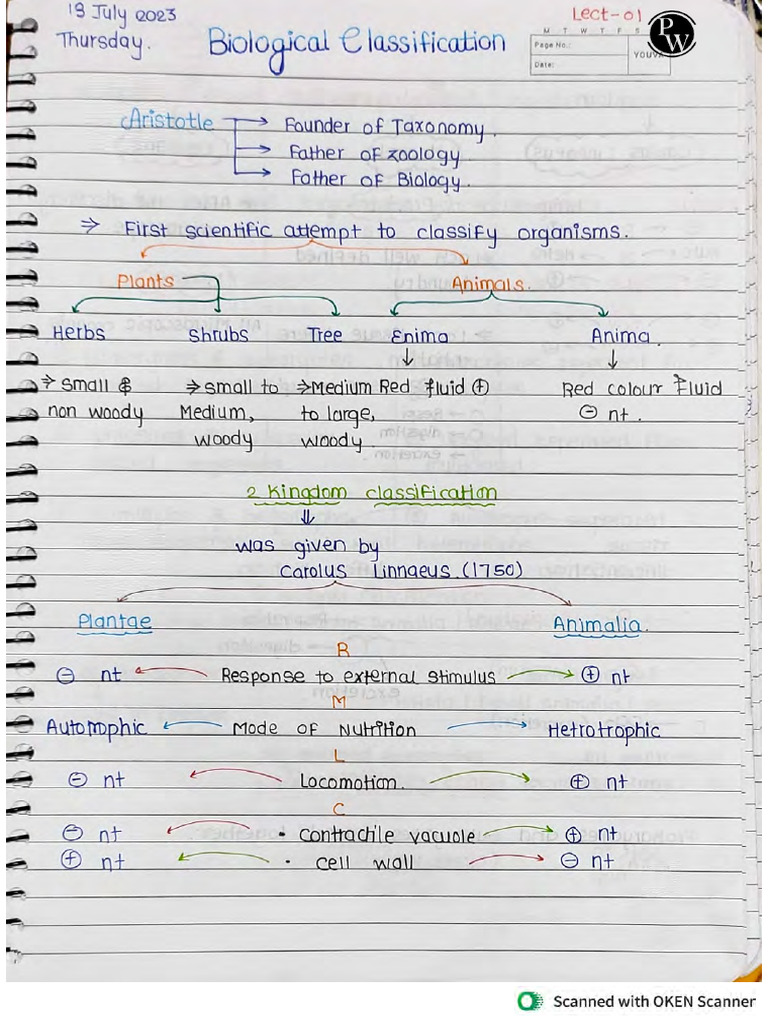 19 July 2023
Thursday.
Lect-01
Biological Classification
M T W T F S
Page No.:
Date:
YOUVA
PW
Aristotle → Founder of Taxonomy.
→ Father of zoology.
→ Father of Biology.
⇒ First scientific attempt to classify organisms.
Plants Animals.
Herbs Shrubs Tree Enima Anima.
↓ ↓
⇒ small & ⇒ small to ⇒ Medium Red fluid ⊕ Red colour Fluid
non woody Medium, to large, ⊖ nt.
woody woody.
2 Kingdom classification
⇓
was given by
Carolus linnaeus. (1750)
Plantae Animalia.
R
⊖ nt ← Response to external stimulus → ⊕ nt
M
Autotrophic ← Mode of Nutrition → Hetrotrophic
L
⊖ nt ← Locomotion. → ⊕ nt
C
⊖ nt ← • contractile vacuole → ⊕ nt
⊕ nt ← • cell wall → ⊖ nt
Scanned with OKEN Scanner